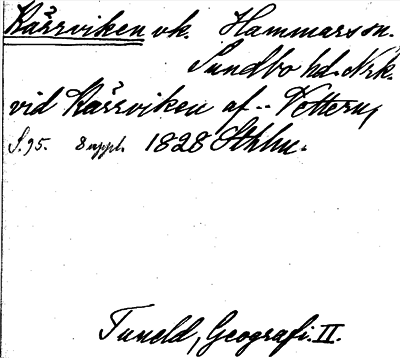 Kärrviken vk. Hammars sn.
Sundbo hd. Nrk.
vid Kärrviken af .. Vettern,
S. 95. 8 uppl. 1828 Sthlm.
Tuneld, Geografi. II.